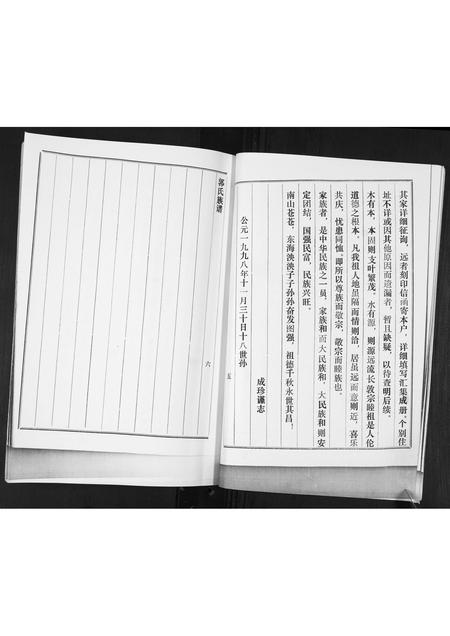 其家详细征询，远者刻印信函寄本户，详细填写汇集成册。个别住
址不详或因其他原因而遗漏者，暂且缺疑，以待查明后续。
木有本，本固则支叶繁茂。水有源，则源远流长敦宗睦祖是人伦
道德之根本。凡我祖人地虽隔而情则洽，居虽远而意则近，喜乐
共庆，忧患同恤。即所以尊族而敬宗，敬宗而睦族也。
家族者，是中华民族之一员，家族和而大民族和，大民族和则安
定团结，国强民富，民族兴旺。
南山苍苍，东海泱泱子子孙孙奋发图强，祖德千秋永世其昌！
成珍谨志
公元一九九八年十一月三十日十八世孙
五
郭氏族谱
六